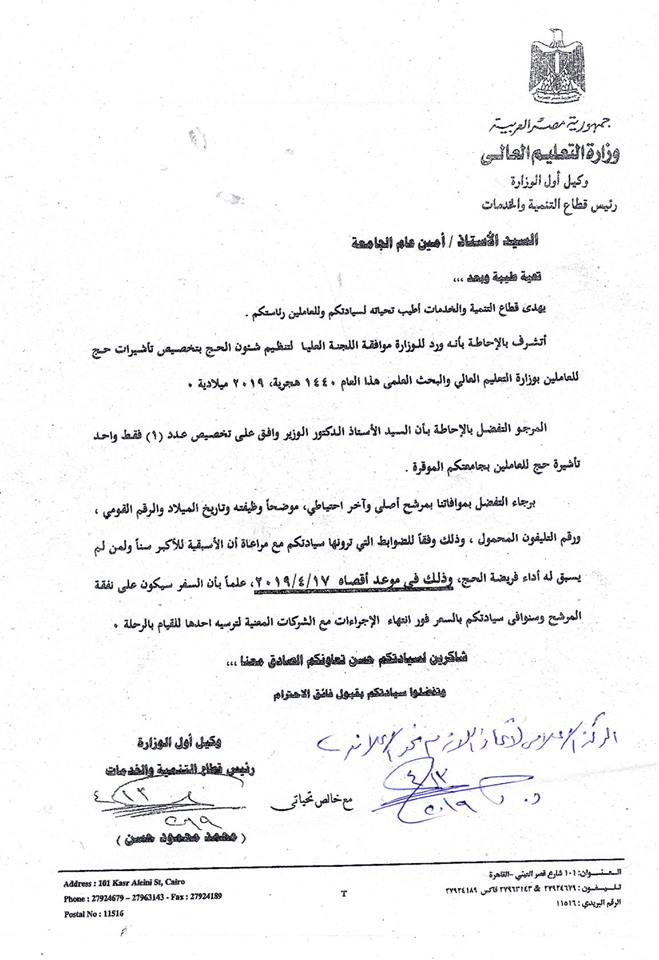 جمهورية مصر العربية
وزارة التعليم العالى
وكيل أول الوزارة
رئيس قطاع التنمية والخدمات
السيد الأستاذ / أمين عام الجامعة
تحية طيبة وبعد ,,,
يهدى قطاع التنمية والخدمات أطيب تحياته لسيادتكم وللعاملين رئاستكم .
أتشرف بالإحاطة بأنه ورد للوزارة موافقة اللجنة العليا لتنظيم شئون الحج بتخصيص تأشيرات حج
للعاملين بوزارة التعليم العالي والبحث العلمى هذا العام ١٤٤٠ هجرية، ٢٠١٩ ميلادية ٠
المرجو التفضل بالإحاطة بأن السيد الأستاذ الدكتور الوزير وافق على تخصيص عدد (١) فقط واحد
تأشيرة حج للعاملين بجامعتكم الموقرة .
برجاء التفضل بموافاتنا بمرشح أصلى وآخر احتياطي، موضحاً وظيفته وتاريخ الميلاد والرقم القومي ،
ورقم التليفون المحمول ، وذلك وفقاً للضوابط التي ترونها سيادتكم مع مراعاة أن الأسبقية للأكبر سناً ولمن لم
يسبق له أداء فريضة الحج، وذلك فى موعد أقصاه ٢٠١٩/٤/١٧، علماً بأن السفر سيكون على نفقة
المرشح وسنوافى سيادتكم بالسعر فور انتهاء الإجراءات مع الشركات المعنية لترسيه احدها للقيام بالرحلة ٠
شاكرين لسيادتكم حسن تعاونكم الصادق معنا ,,,
وتفضلوا سيادتكم بقبول فائق الاحترام
المركز الإعلامى لاتخاذ اللازم نحو الإعلان
وكيل أول الوزارة
رئيس قطاع التنمية والخدمات
٤/١٣
٢٠١٩
مع خالص تحياتى
٤/١٣
٢٠١٩
( محمد محمود حسن )
العنوان: ١٠١ شارع قصر العيني -القاهرة
تليفون: ٢٧٩٢٤٦٧٩ & ٢٧٩٦٣١٤٣ فاكس ٢٧٩٢٤١٨٩
الرقم البريدي : ١١٥١٦
T
Address : 101 Kasr Alcini St, Cairo
Phone : 27924679 – 27963143 - Fax : 27924189
Postal No : 11516